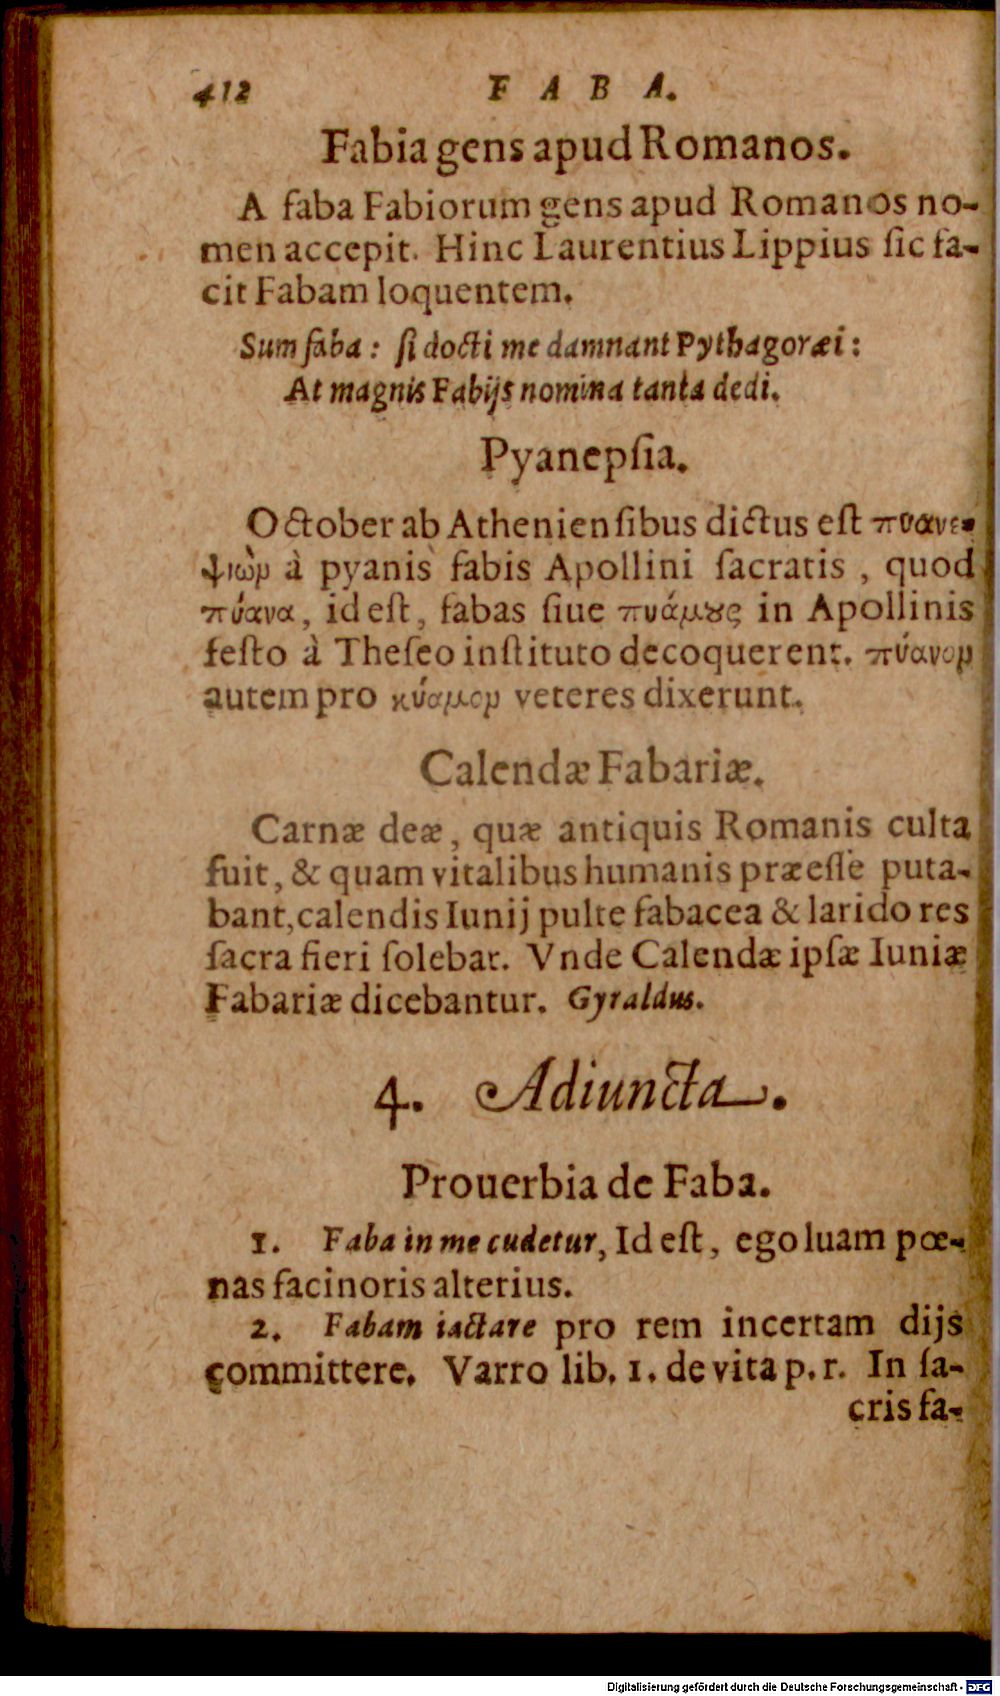 412 F A B A.
Fabia gens apud Romanos.
A faba Fabiorum gens apud Romanos no-
men accepit. Hinc Laurentius Lippius ſic fa-
cit Fabam loquentem.
Sum faba: ſi docti me damnant Pythagoræi:
At magnis Fabijs nomina tanta dedi.
Pyanepſia.
October ab Athenienſibus dictus eſt πυανε-
ψιὼν à pyanis fabis Apollini ſacratis, quod
πύανα, id eſt, fabas ſiue πυάμȣς in Apollinis
feſto à Theſeo inſtituto decoquerent. πύανον
autem pro κύαμον veteres dixerunt.
Calendæ Fabariæ.
Carnæ deæ, quæ antiquis Romanis culta
fuit, & quam vitalibus humanis præeſſe puta-
bant, calendis Iunij pulte fabacea & larido res
ſacra fieri ſolebat. Vnde Calendæ ipſæ Iuniæ
Fabariæ dicebantur. Gyraldus.
4. Adiuncta.
Prouerbia de Faba.
1. Faba in me cudetur, Id eſt, ego luam pœ-
nas facinoris alterius.
2. Fabam iactare pro rem incertam dijs
committere. Varro lib. 1. de vita p. r. In ſa-
cris fa-
Digitalisierung gefördert durch die Deutsche Forschungsgemeinschaft - DFG